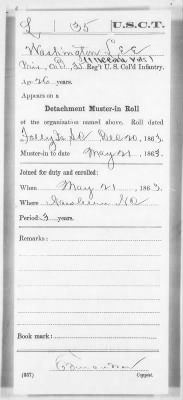 L 35 U.S.C.T.
Washington Lee
Co. D, 35 Reg't U. S. Col'd Infantry.
Age 26 years.
Appears on a
Detachment Muster-in Roll
of the organization named above. Roll dated
Folly Is. SC Dec 20, 1863.
Muster-in to date May 21, 1863.
Joined for duty and enrolled:
When May 21, 1863
Where
Period 3 years.
Remarks:
Book mark:
(337) Copyist.